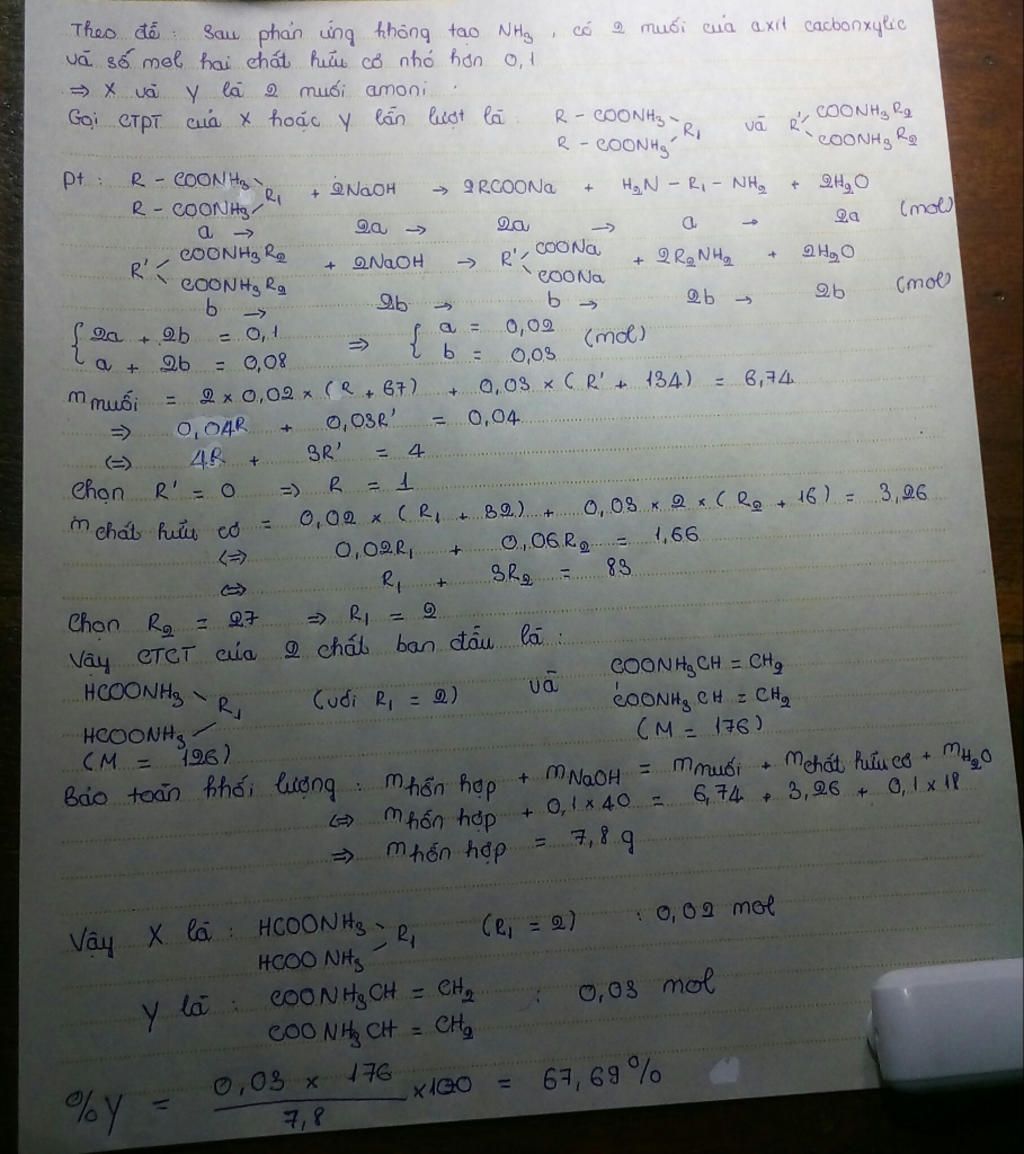 Theo đề : Sau phản ứng không tạo NH3 , có 2 muối của axit cacbonxylic
và số mol hai chất hữu cơ nhỏ hơn 0,1
⇒ X và Y là 2 muối amoni .
Gọi CTPT của X hoặc Y lần lượt là : R - COONH3 \ R1 và R' / COONH3R2
R - COONH3 / \ COONH3R2
Pt : R - COONH3 \ R1 + 2NaOH → 2RCOONa + H2N - R1 - NH2 + 2H2O
R - COONH3 /
a → 2a → 2a → a → 2a (mol)
R' / COONH3R2 + 2NaOH → R' / COONa + 2R2NH2 + 2H2O
\ COONH3R2 \ COONa
b → 2b → b → 2b → 2b (mol)
{ 2a + 2b = 0,1 ⇒ { a = 0,02 (mol)
a + 2b = 0,08 b = 0,03
m muối = 2 × 0,02 × (R + 67) + 0,03 × (R' + 134) = 6,74
⇒ 0,04R + 0,03R' = 0,04
⇔ 4R + 3R' = 4
Chọn R' = 0 ⇒ R = 1
m chất hữu cơ = 0,02 × (R1 + 32) + 0,03 × 2 × (R2 + 16) = 3,26
⇔ 0,02R1 + 0,06R2 = 1,66
⇔ R1 + 3R2 = 83
Chọn R2 = 27 ⇒ R1 = 2
Vậy CTCT của 2 chất ban đầu là :
HCOONH3 \ R1 (với R1 = 2) và COONH3CH = CH2
HCOONH3 / COONH3CH = CH2
(M = 126) (M = 176)
Bảo toàn khối lượng : m hỗn hợp + m NaOH = m muối + m chất hữu cơ + m H2O
⇔ m hỗn hợp + 0,1 × 40 = 6,74 + 3,26 + 0,1 × 18
⇒ m hỗn hợp = 7,8 g
Vậy X là : HCOONH3 \ R1 (R1 = 2) : 0,02 mol
HCOONH3 /
Y là : COONH3CH = CH2 : 0,03 mol
COONH3CH = CH2
%Y = 0,03 × 176 / 7,8 × 100 = 67,69%